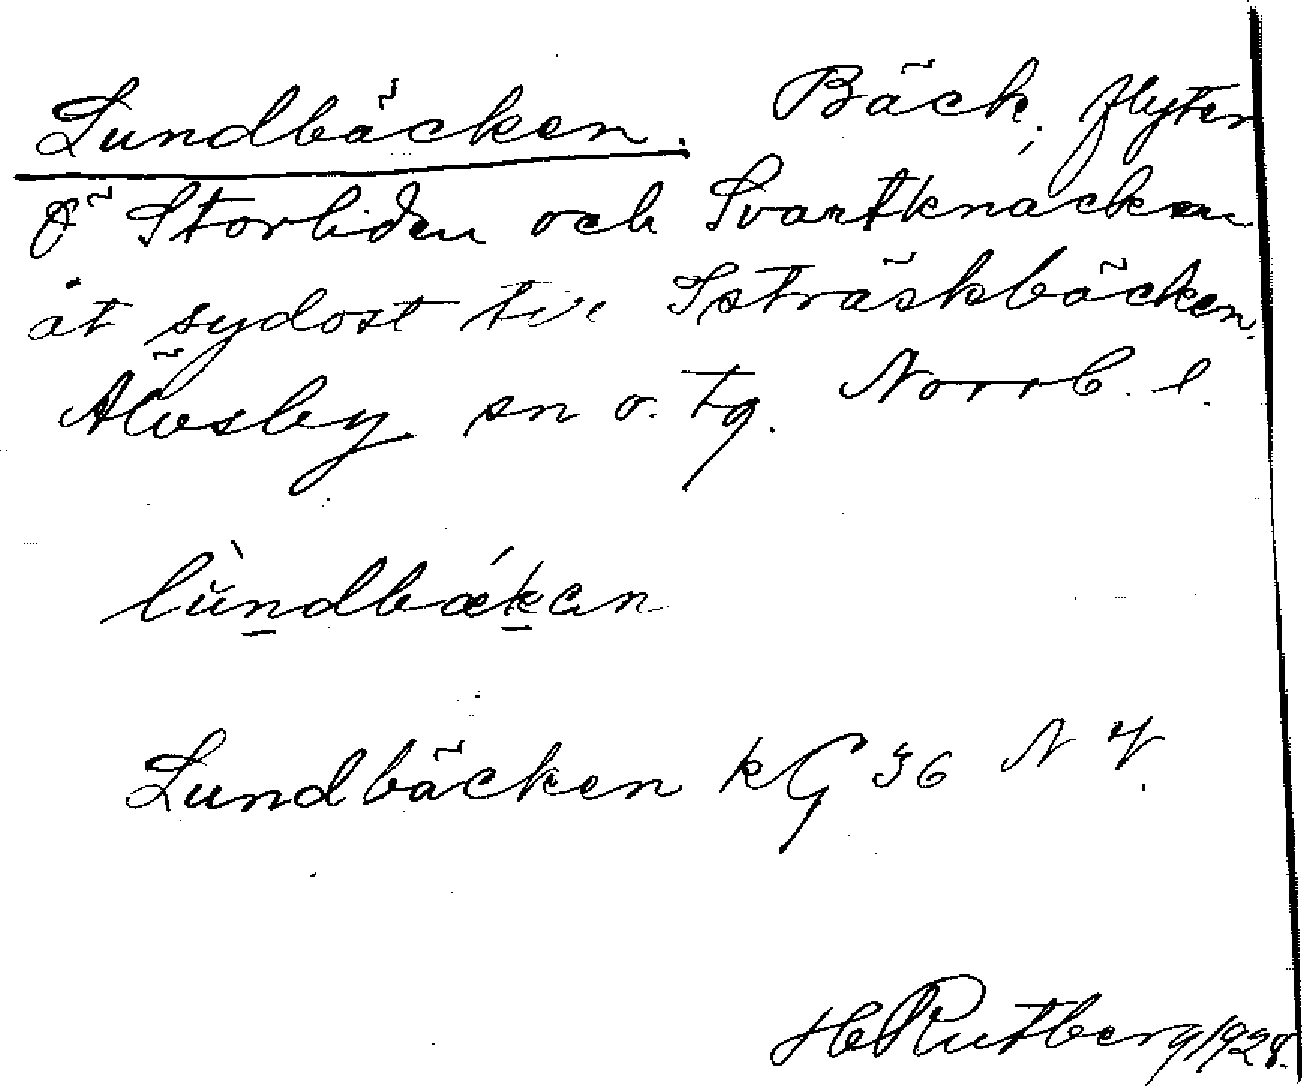 Lundbäcken. Bäck, flyter
fr Storliden och Svartknäcken
åt sydost till Isträskbäcken.
Älvsby sn o. tg. Norrb. l.
lùndbǽkan
Lundbäcken kG 36 NV.
H Rutberg 1928.